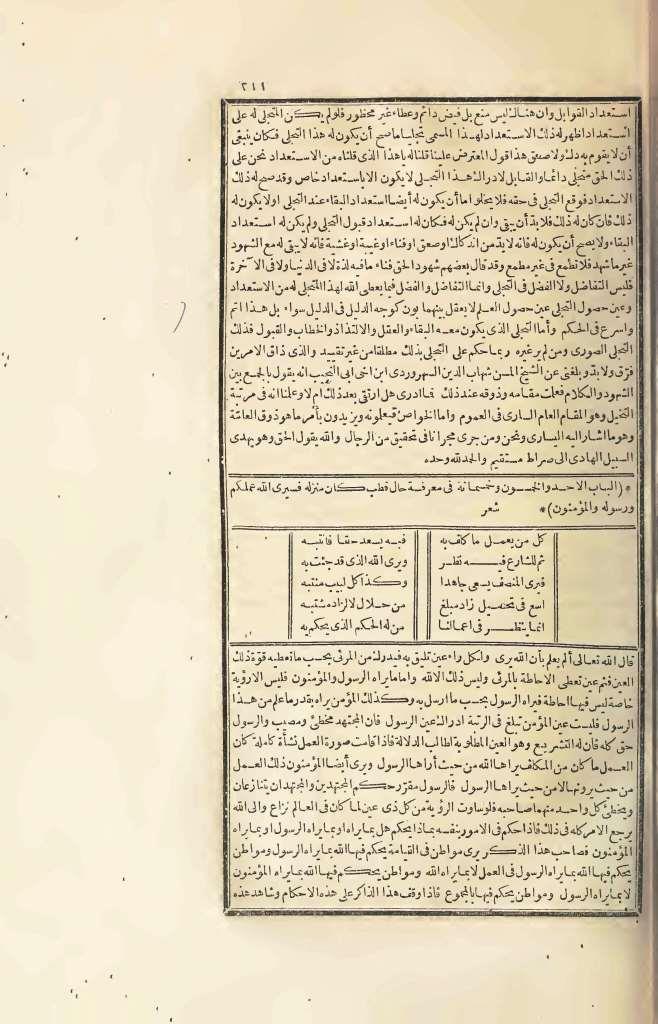 ٢١١
استعداد القوابل وان هنالك ليس منع بل فيض دائم وعطاء غير محظور فلو لم يكن المتجلى له على
استعداد اظهر له ذلك الاستعداد لهذا المسمى تجليا ما صح أن يكون له هذا التجلى فكان ينبغى
أن لا يقوم به دك ولا صعق هذا قول المعترض علينا قلنا له يا هذا الذى قلناه من الاستعداد نحن على
ذلك الحق متجلى دائما والقابل لادراك هذا التجلى لا يكون الا باستعداد خاص وقد صح له ذلك
الاستعداد فوقع التجلى فى حقه فلا يخلو اما أن يكون له أيضا استعداد البقاء عند التجلى أو لا يكون له
ذلك فان كان له ذلك فلا بد أن يبقى وان لم يكن له فكان له استعداد قبول التجلى ولم يكن له استعداد
البقاء ولا يصح أن يكون له فانه لا بد من اندكاك أو صعق أو فناء أو غيبة أو غشية فانه لا يبقى له مع الشهود
غير ما شهد فلا تطمع فى غير مطمع وقد قال بعضهم شهود الحق فناء ما فيه لذة لا فى الدنيا ولا فى الآخرة
فليس التفاضل ولا الفضل فى التجلى وانما التفاضل والفضل فيما يعطى الله لهذا المتجلى له من الاستعداد
وعين حصول التجلى عين حصول العلم لا يعقل بينهما بون كوجه الدليل فى الدليل سواء بل هذا أتم
وأسرع فى الحكم وأما التجلى الذى يكون معه البقاء والعقل والالتذاذ والخطاب والقبول فذلك
التجلى الصورى ومن لم ير غيره ربما حكم على التجلى بذلك مطلقا من غير تقييد والذى ذاق الامرين
فرق ولا بد وبلغنى عن الشيخ المسن شهاب الدين السهروردى ابن اخى ابى النجيب انه يقول بالجمع بين
الشهود والكلام فعلمت مقامه وذوقه عند ذلك فما ادرى هل ارتقى بعد ذلك أم لا وعلمنا انه فى مرتبة
التخيل وهو المقام العام السارى فى العموم واما الخواص فيعلمونه ويزيدون بأمر ما هو ذوق العامة
وهو ما اشار اليه السيارى ونحن ومن جرى مجرانا فى تحقيق من الرجال والله يقول الحق وهو يهدى
السبيل الهادى الى صراط مستقيم والحمد لله وحده
* (الباب الاحد والخمسون وخمسمائة فى معرفة حال قطب كان منزله فسيرى الله عملكم
ورسوله والمؤمنون)* شعر
كل من يعمل ما كلف به فبه يسعد حقا فانتبه
ثم للشارع فيه نظر ويرى الله الذى قد جئت به
فيرى المنصف يسعى جاهدا وكذا كل لبيب منتبه
اسع فى تحصيل زاد مبلغ من حلال لا لزاد مشتبه
انما ينظر فى اعمالنا من له الحكم الذى يحكم به
قال الله تعالى ألم يعلم بأن الله يرى ولكل راء عين تليق به فيدرك من المرئى بحسب ما تعطيه قوة ذلك
العين فثم عين تعطى الاحاطة بالمرئى وليس ذلك الا لله واما ما يراه الرسول والمؤمنون فليس الا رؤية
خاصة ليس فيها احاطة فيراه الرسول بحسب ما ارسل به وكذلك المؤمن يراه بقدر ما علم من هذا
الرسول فليست عين المؤمن تبلغ فى الرتبة ادراك عين الرسول فان المجتهد مخطئ ومصيب والرسول
حق كله فان له التشريع وهو العين المطلوبة لطالب الدلالة فاذا قامت صورة العمل نشأة كاملة كان
العمل ما كان من المكلف يراها الله من حيث أراها الرسول ويرى أيضا المؤمنون ذلك العمل
من حيث يرونها لا من حيث يراها الرسول فالرسول مقرر حكم المجتهدين والمجتهدان يتنازعان
ويخطئ كل واحد منهما صاحبه فلو ساوت الرؤية من كل ذى عين لما كان فى العالم نزاع والى الله
يرجع الامر كله فى ذلك فاذا حكم فى الامور بنفسه بماذا يحكم هل بما يراه أو بما يراه الرسول أو بما يراه
المؤمنون فصاحب هذا الذكر يرى مواطن فى القيامة يحكم فيها الله بما يراه الرسول ومواطن
يحكم فيها الله بما يراه الرسول فى العمل لا بما يراه الله ومواطن يحكم فيها الله بما يراه المؤمنون
لا بما يراه الرسول ومواطن يحكم فيها بالمجموع فاذا وقف هذا الذاكر على هذه الاحكام وشاهد هذه